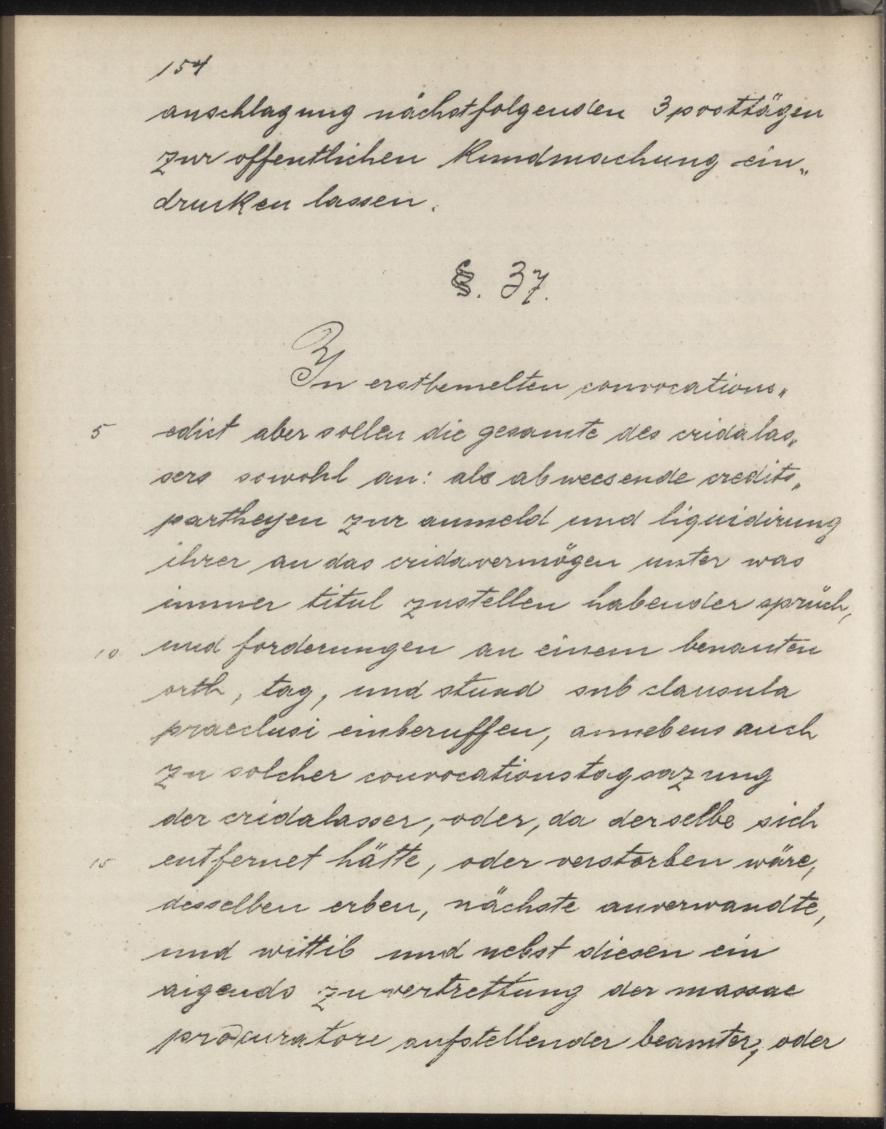 154
anschlagung nächstfolgenden 3 posttägen
zur offentlichen Kundmachung ein„
druken lassen.
§. 37.
In erstbemelten convocations„
5 edict aber sollen die gesamte des cridalas„
sers sowohl an: als abweesende credits„
partheyen zur anmeld und liquidirung
ihrer an das cridavermögen unter was
immer titul zustellen habender sprüch,
10 und forderungen an einem benanten
orth, tag, und stund sub clausula
praeclusi einberuffen, annebens auch
zu solcher convocationstagsazung
der cridalasser, oder, da derselbe sich
15 entfernet hätte, oder verstorben wäre,
desselben erben, nächste anverwandte,
und wittib und nebst diesen ein
aigends zu vertrettung der massae
procuratore aufstellender beamter, oder